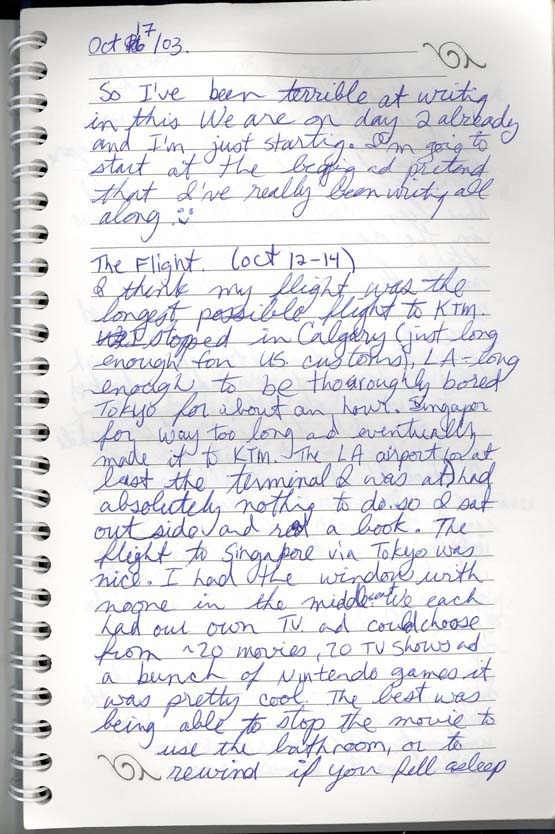 Oct 17/03.
So I've been terrible at writing
in this We are on day 2 already
and I'm just startig. I'm goig to
start at the begig ad pretend
that I've really been writig all
along.
The Flight. (oct 12-14)
I think my flight was the
longest possible flight to KTM.
I stopped in Calgary (just long
enough for US. customs), LA-long
enough to be thoaroughly bored
Tokyo for about an hour. Singapor
for way too long ad eventually
made it to KTM. The LA airport (or at
least the terminal I was at) had
absolutely nothig to do. so I sat
out side and red a book. The
flight to Singapore via Tokyo was
nice. I had the window with
noone in the middle seat We each
had our own TV ad could choose
from ~20 movies, 20 TV shows ad
a bunch of Nintendo games it
was pretty cool. The best was
being able to stop the movie to
use the bathroom, or to
rewind if you fell asleep